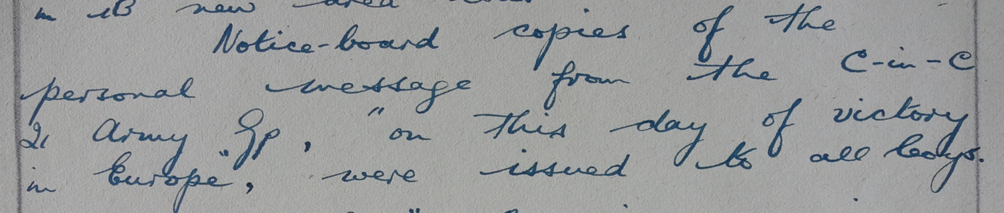 in its new area
Notice-board copies of the
personal message from the C-in-C
21 Army Gp, "on this day of victory
in Europe", were issued to all coys.